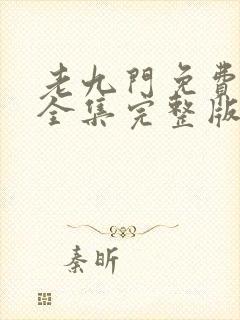 老九門免費
全集完整版
秦昕